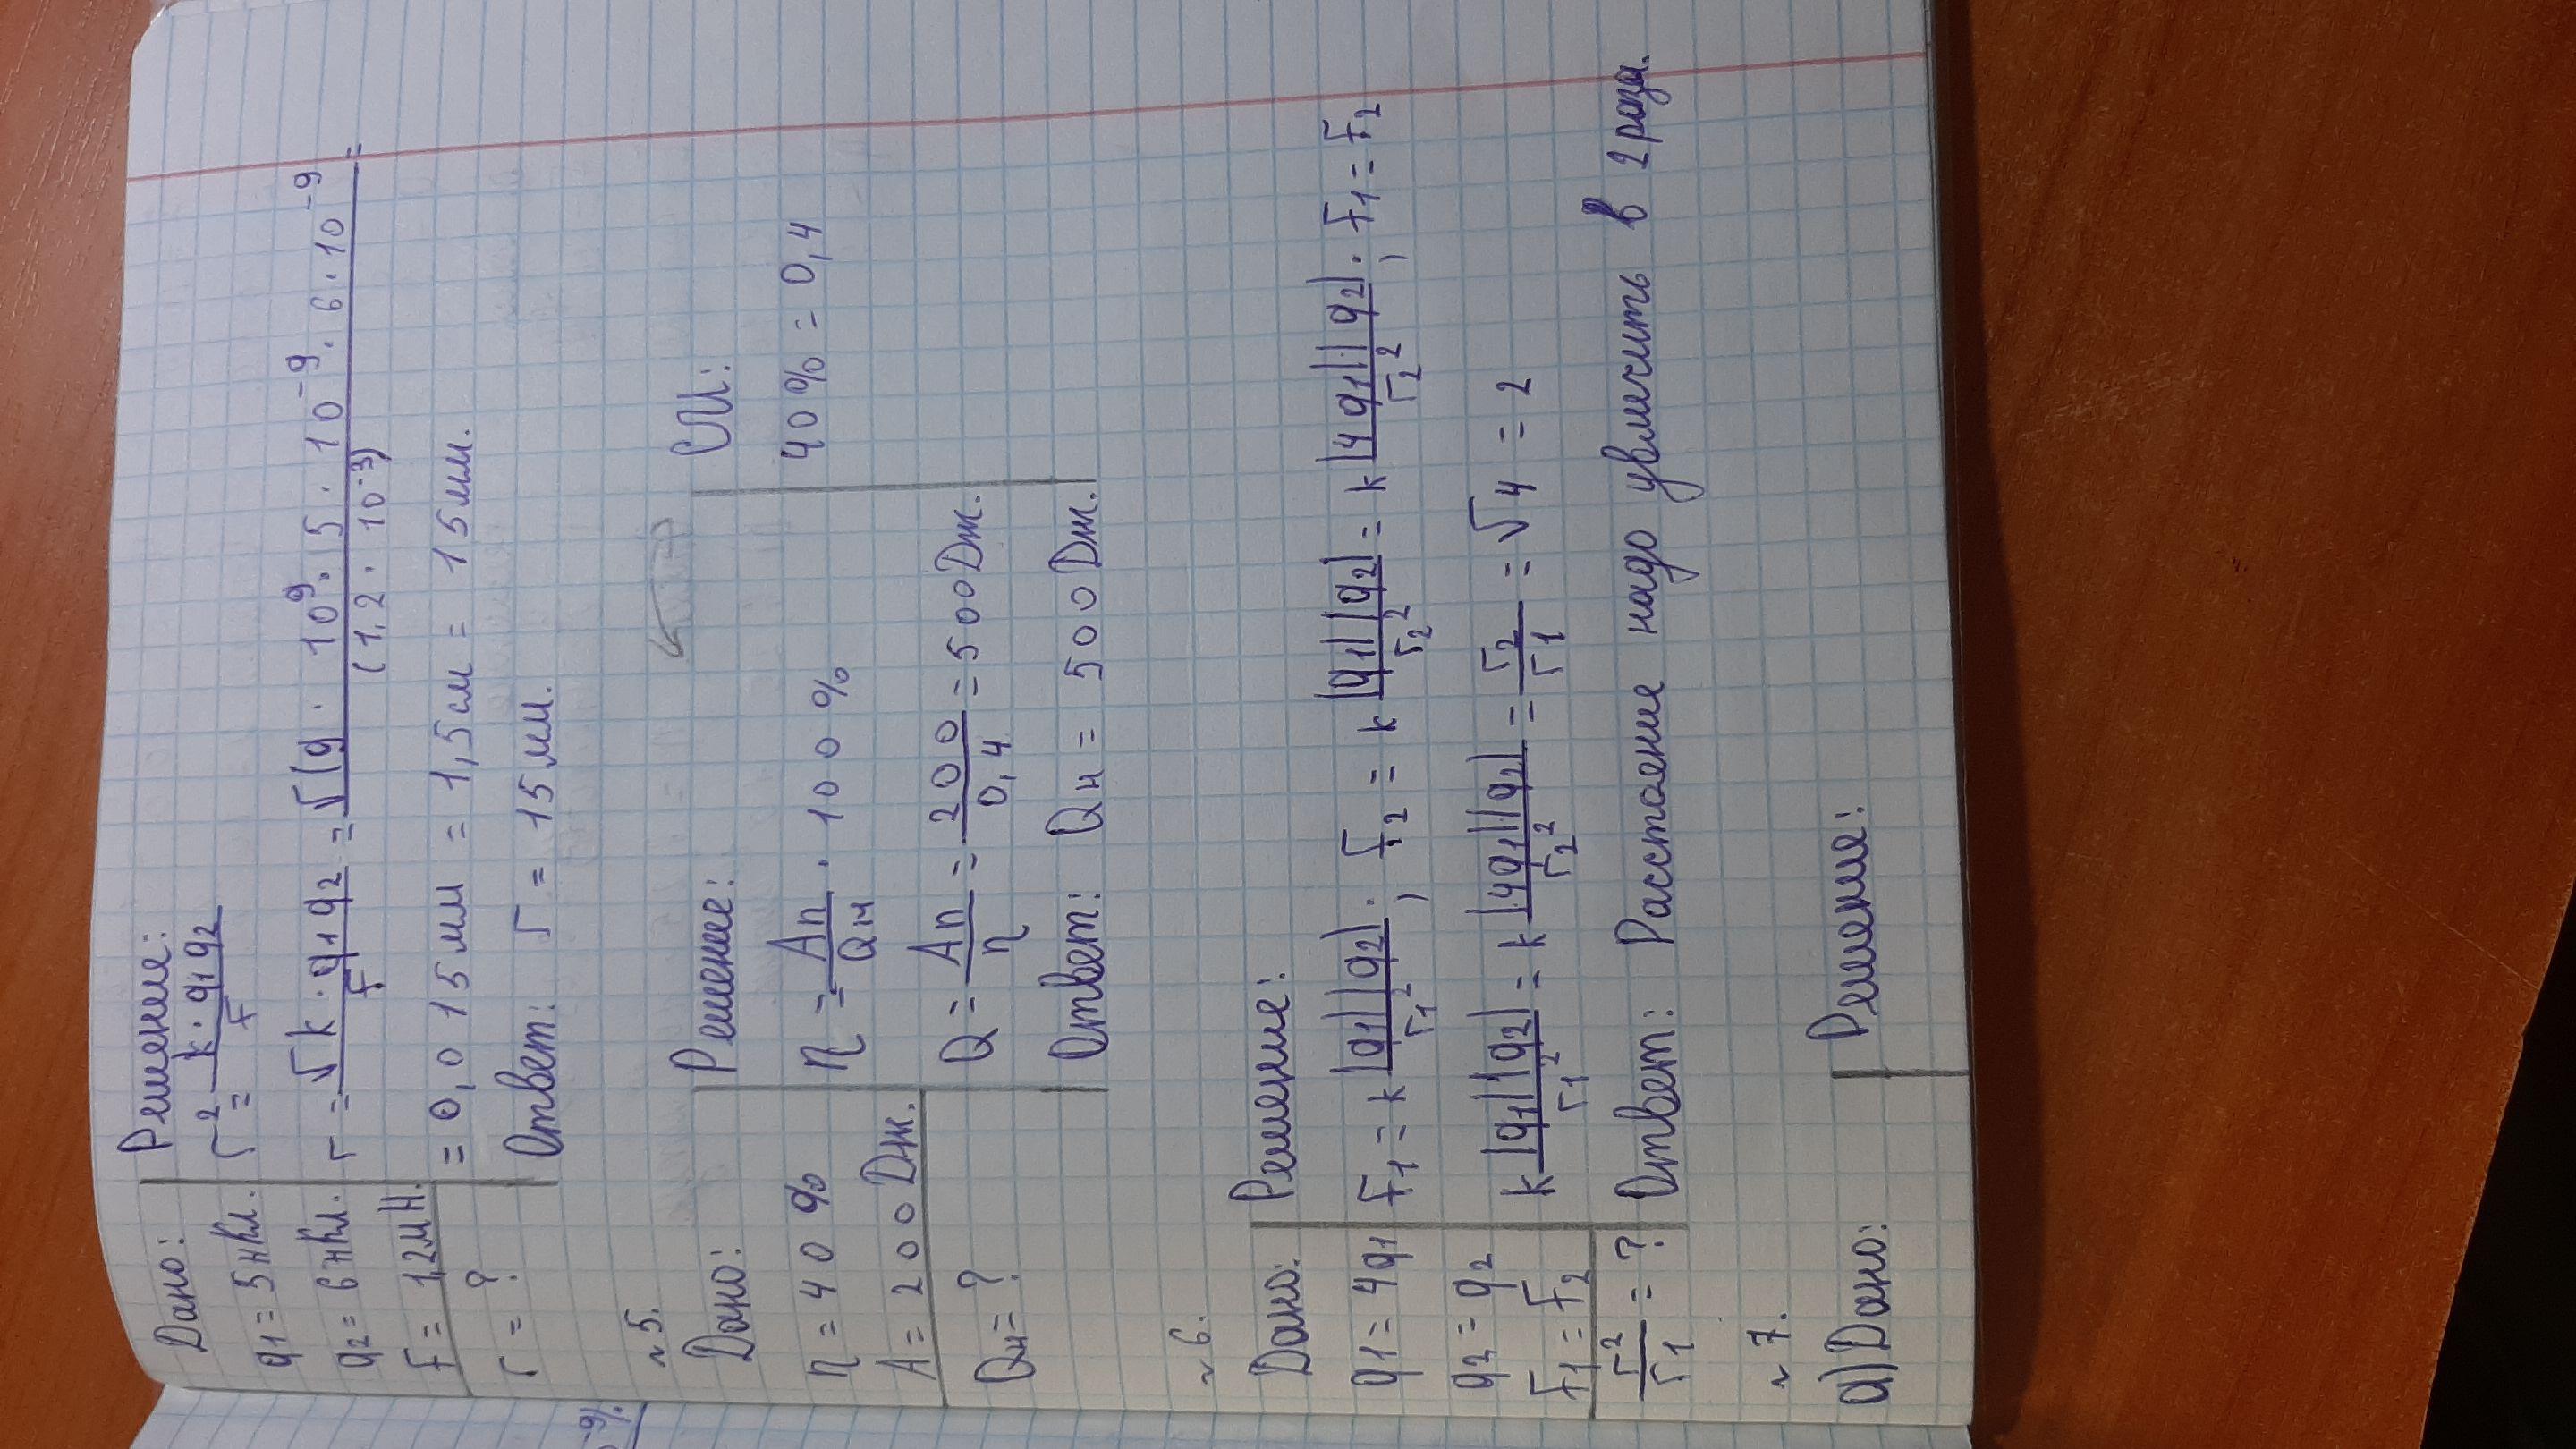 Дано:
q1 = 5нКл.
q2 = 6нКл.
F = 1,2мН.
r = ?
Решение:
r² = k · q1q2 / F
r = √k · q1q2 / F = √(9 · 10⁹ · 5 · 10⁻⁹ · 6 · 10⁻⁹ / (1,2 · 10⁻³) =
= 0,015мм = 1,5см = 15мм.
Ответ: r = 15мм.
~5.
Дано:
η = 40 %
A = 200Дж.
Qн = ?
Решение:
η = Aп / Qн · 100 %
Q = Aп / η = 200 / 0,4 = 500Дж.
Ответ: Qн = 500Дж.
СИ:
40% = 0,4
~6.
Дано:
q1 = 4q1
q2 = q2
F1 = F2
r2 / r1 = ?
Решение:
F1 = k |q1||q2| / r1²; F2 = k |q1||q2| / r2² = k |4q1||q2| / r2²; F1 = F2
k |q1||q2| / r1² = k |4q1||q2| / r2² = r2 / r1 = √4 = 2
Ответ: Расстояние надо увеличить в 2 раза.
~7.
а)Дано:
Решение:
-9).